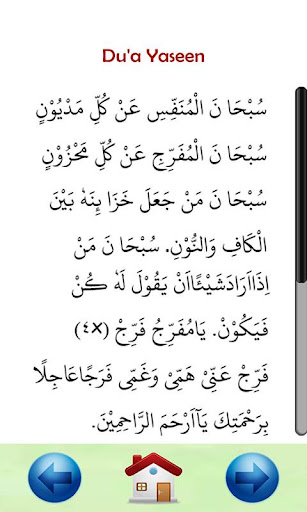 Du'a Yaseen
سُبْحَا نَ الْمُنَفِّسِ عَنْ كُلِّ مَدْيُوْنٍ
سُبْحَا نَ الْمُفَرِّجِ عَنْ كُلِّ مَحْزُوْنٍ
سُبْحَا نَ مَنْ جَعَلَ خَزَا ئِنَهٗ بَيْنَ
الْكَافِ وَالنُّوْنِ. سُبْحَا نَ مَنْ
اِذَااَرَادَشَيْئًااَنْ يَقُوْلَ لَهٗ كُنْ
فَيَكُوْنْ. يَامُفَرِّجُ فَرِّجْ (٤x)
فَرِّجْ عَنِّيْ هَمِّيْ وَغَمِّيْ فَرَجًاعَاجِلًا
بِرَحْمَتِكَ يَآاَرْحَمَ الرَّاحِمِيْنَ.